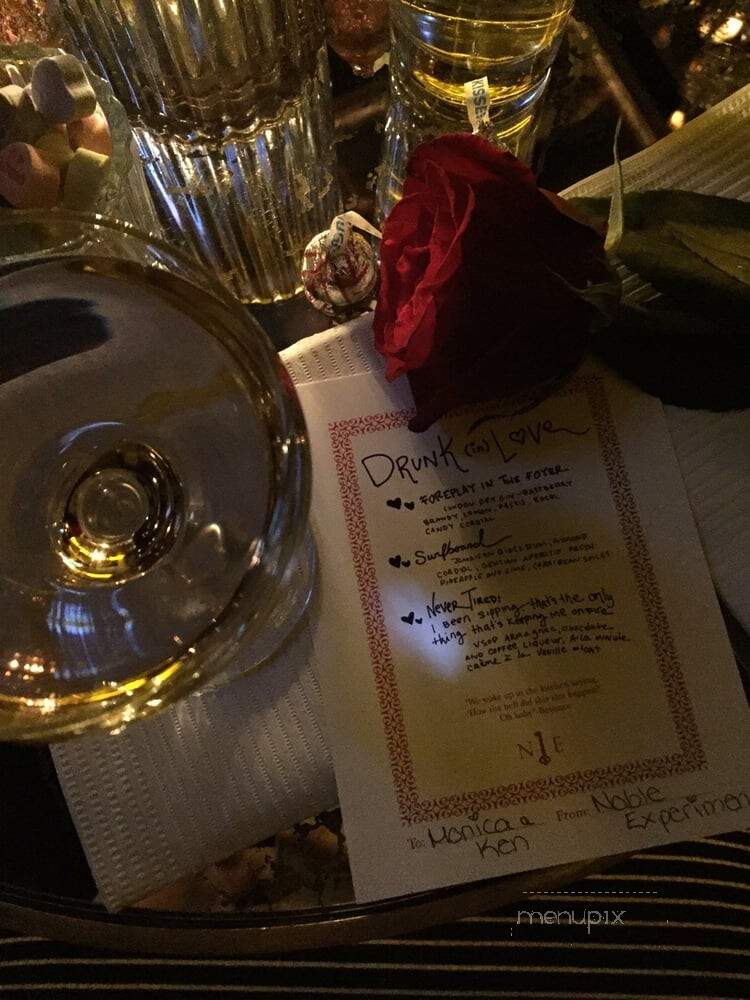 KISSES
DRUNK (in) LOVE
FOREPLAY IN THE FOYER
LONDON DRY GIN, RASPBERRY
BRANDY, LEMON, PASTIS, ROCK
CANDY CORDIAL
Surfboard
JAMAICAN RUM, ALMOND
CORDIAL, GENTIAN APERITIF, FRESH
PINEAPPLE AND LIME, CARIBBEAN SPICES
NEVER TIRED:
I BEEN SIPPING - that's the only
thing that's keeping me on fire
VSOP ARMAGNAC, CHOCOLATE
AND COFFEE LIQUEUR, A la minute
CRÈME la Vanille float
"We woke up in the kitchen saying,
'How the hell did this shit happen?'
Oh baby" - Beyonce
N E
To: Monica & From: Noble
Ken Experimen
menupix